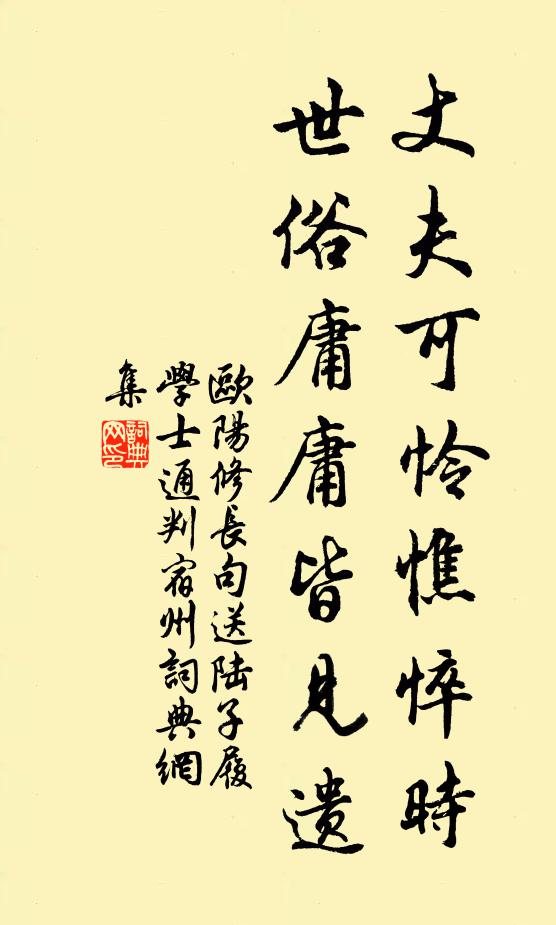 丈夫可怜憔悴時
世俗庸庸皆見遺
歐陽修長句送陆子履
學士通判宿州詞典網
集
詞典
网印